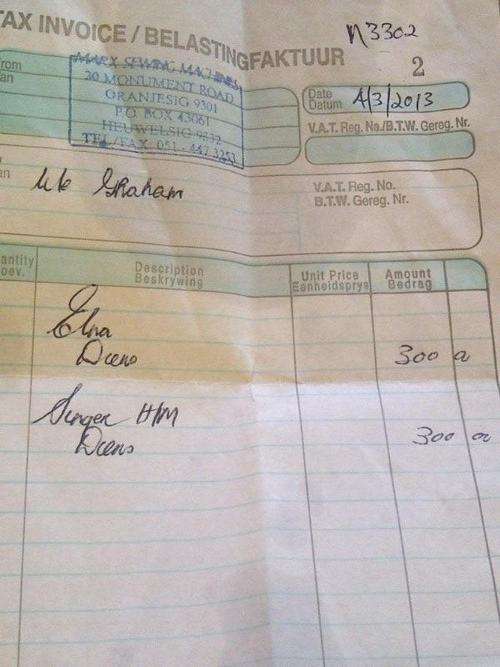 TAX INVOICE / BELASTINGFAKTUUR
N3302
2
From
MARX SEWING MACHINES
20 MONUMENT ROAD
ORANJESIG 9301
P.O. BOX 43061
HEUWELSIG 9332
TEL/FAX. 051-447 3253
Date
Datum
4/3/2013
V.A.T. Reg. No./B.T.W. Gereg. Nr.
Graham
V.A.T. Reg. No.
B.T.W. Gereg. Nr.
antity
oev.
Description
Beskrywing
Unit Price
Eenheidsprys
Amount
Bedrag
Elna
Diens
300
Singer H/M
Diens
300